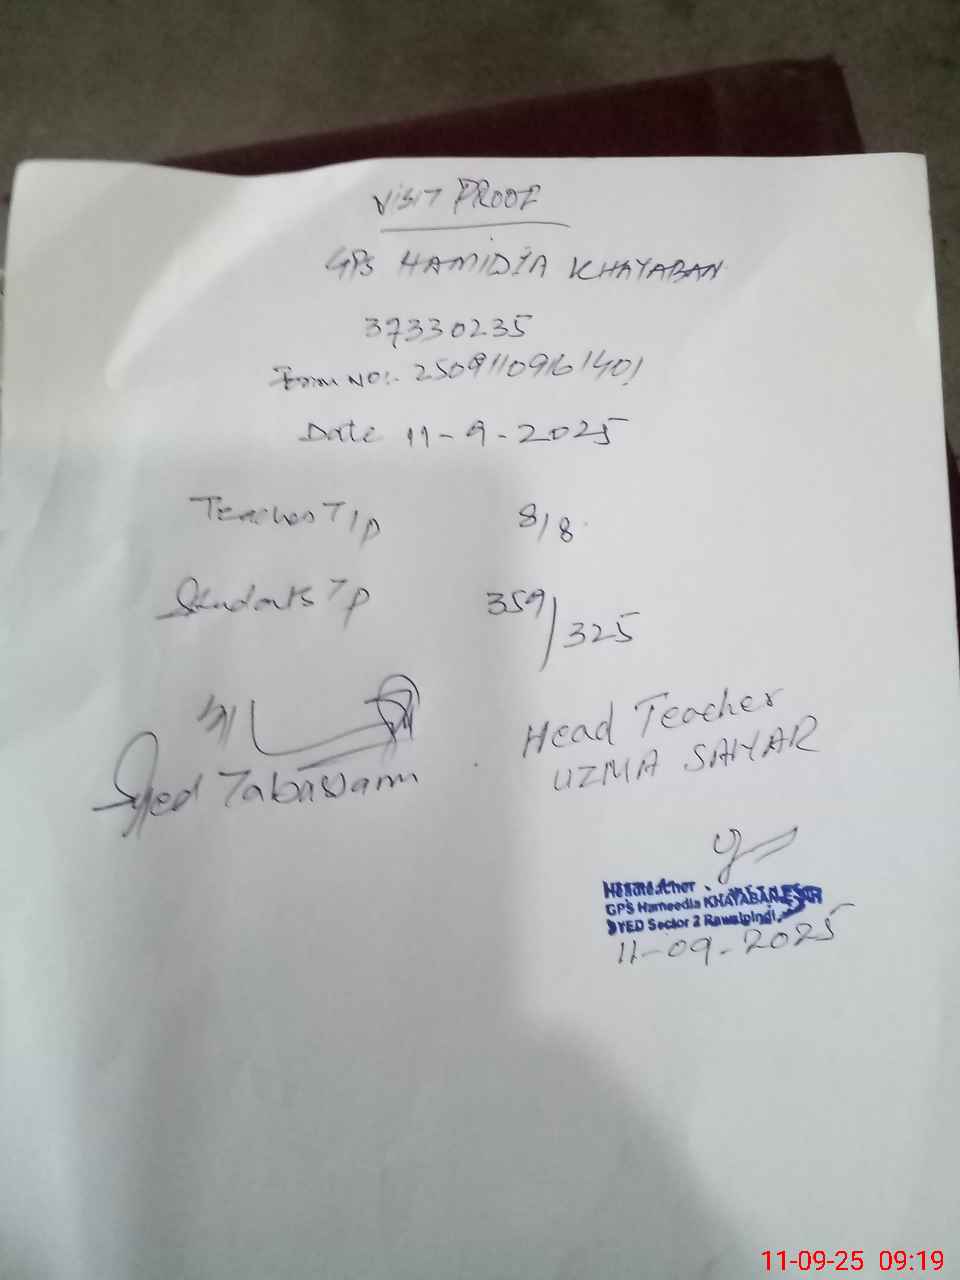 VISIT PROOF
GPS HAMIDIA KHAYABAN
37330235
Form NO:- 25091109161401
Date 11-9-2025
Teacher T/p 8/8
Students T/p 359/325
Syed Tabassam
Head Teacher
UZMA
Headteacher
GPS Hameedia KHAYABAN-E-SIR
SYED Sector 2 Rawalpindi
11-09-2025
11-09-25 09:19